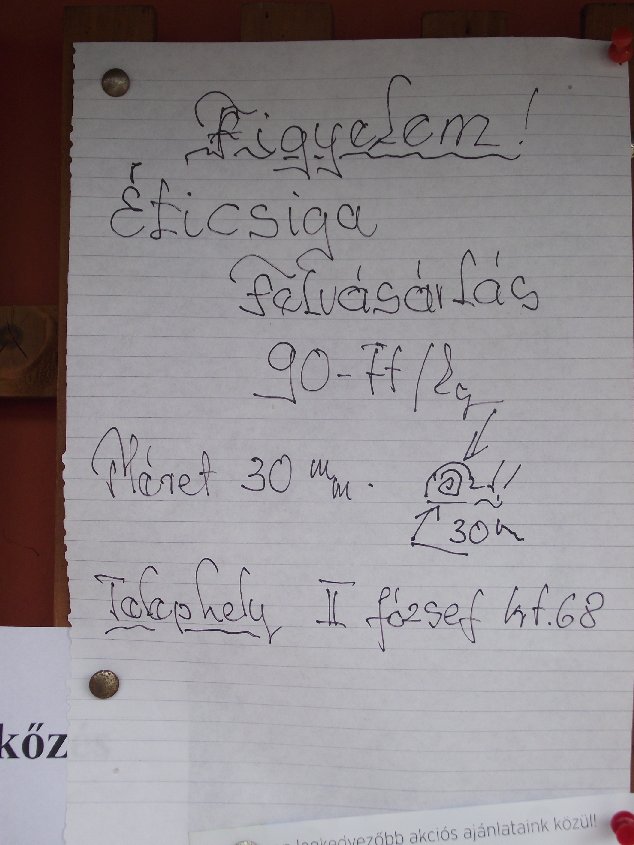 Figyelem!
Éticsiga
Felvásárlás
90-Ft/kg
Méret 30 mm.
30 m
Telephely II József krt. 68
kőz
legkedvezőbb akciós ajánlataink közül!